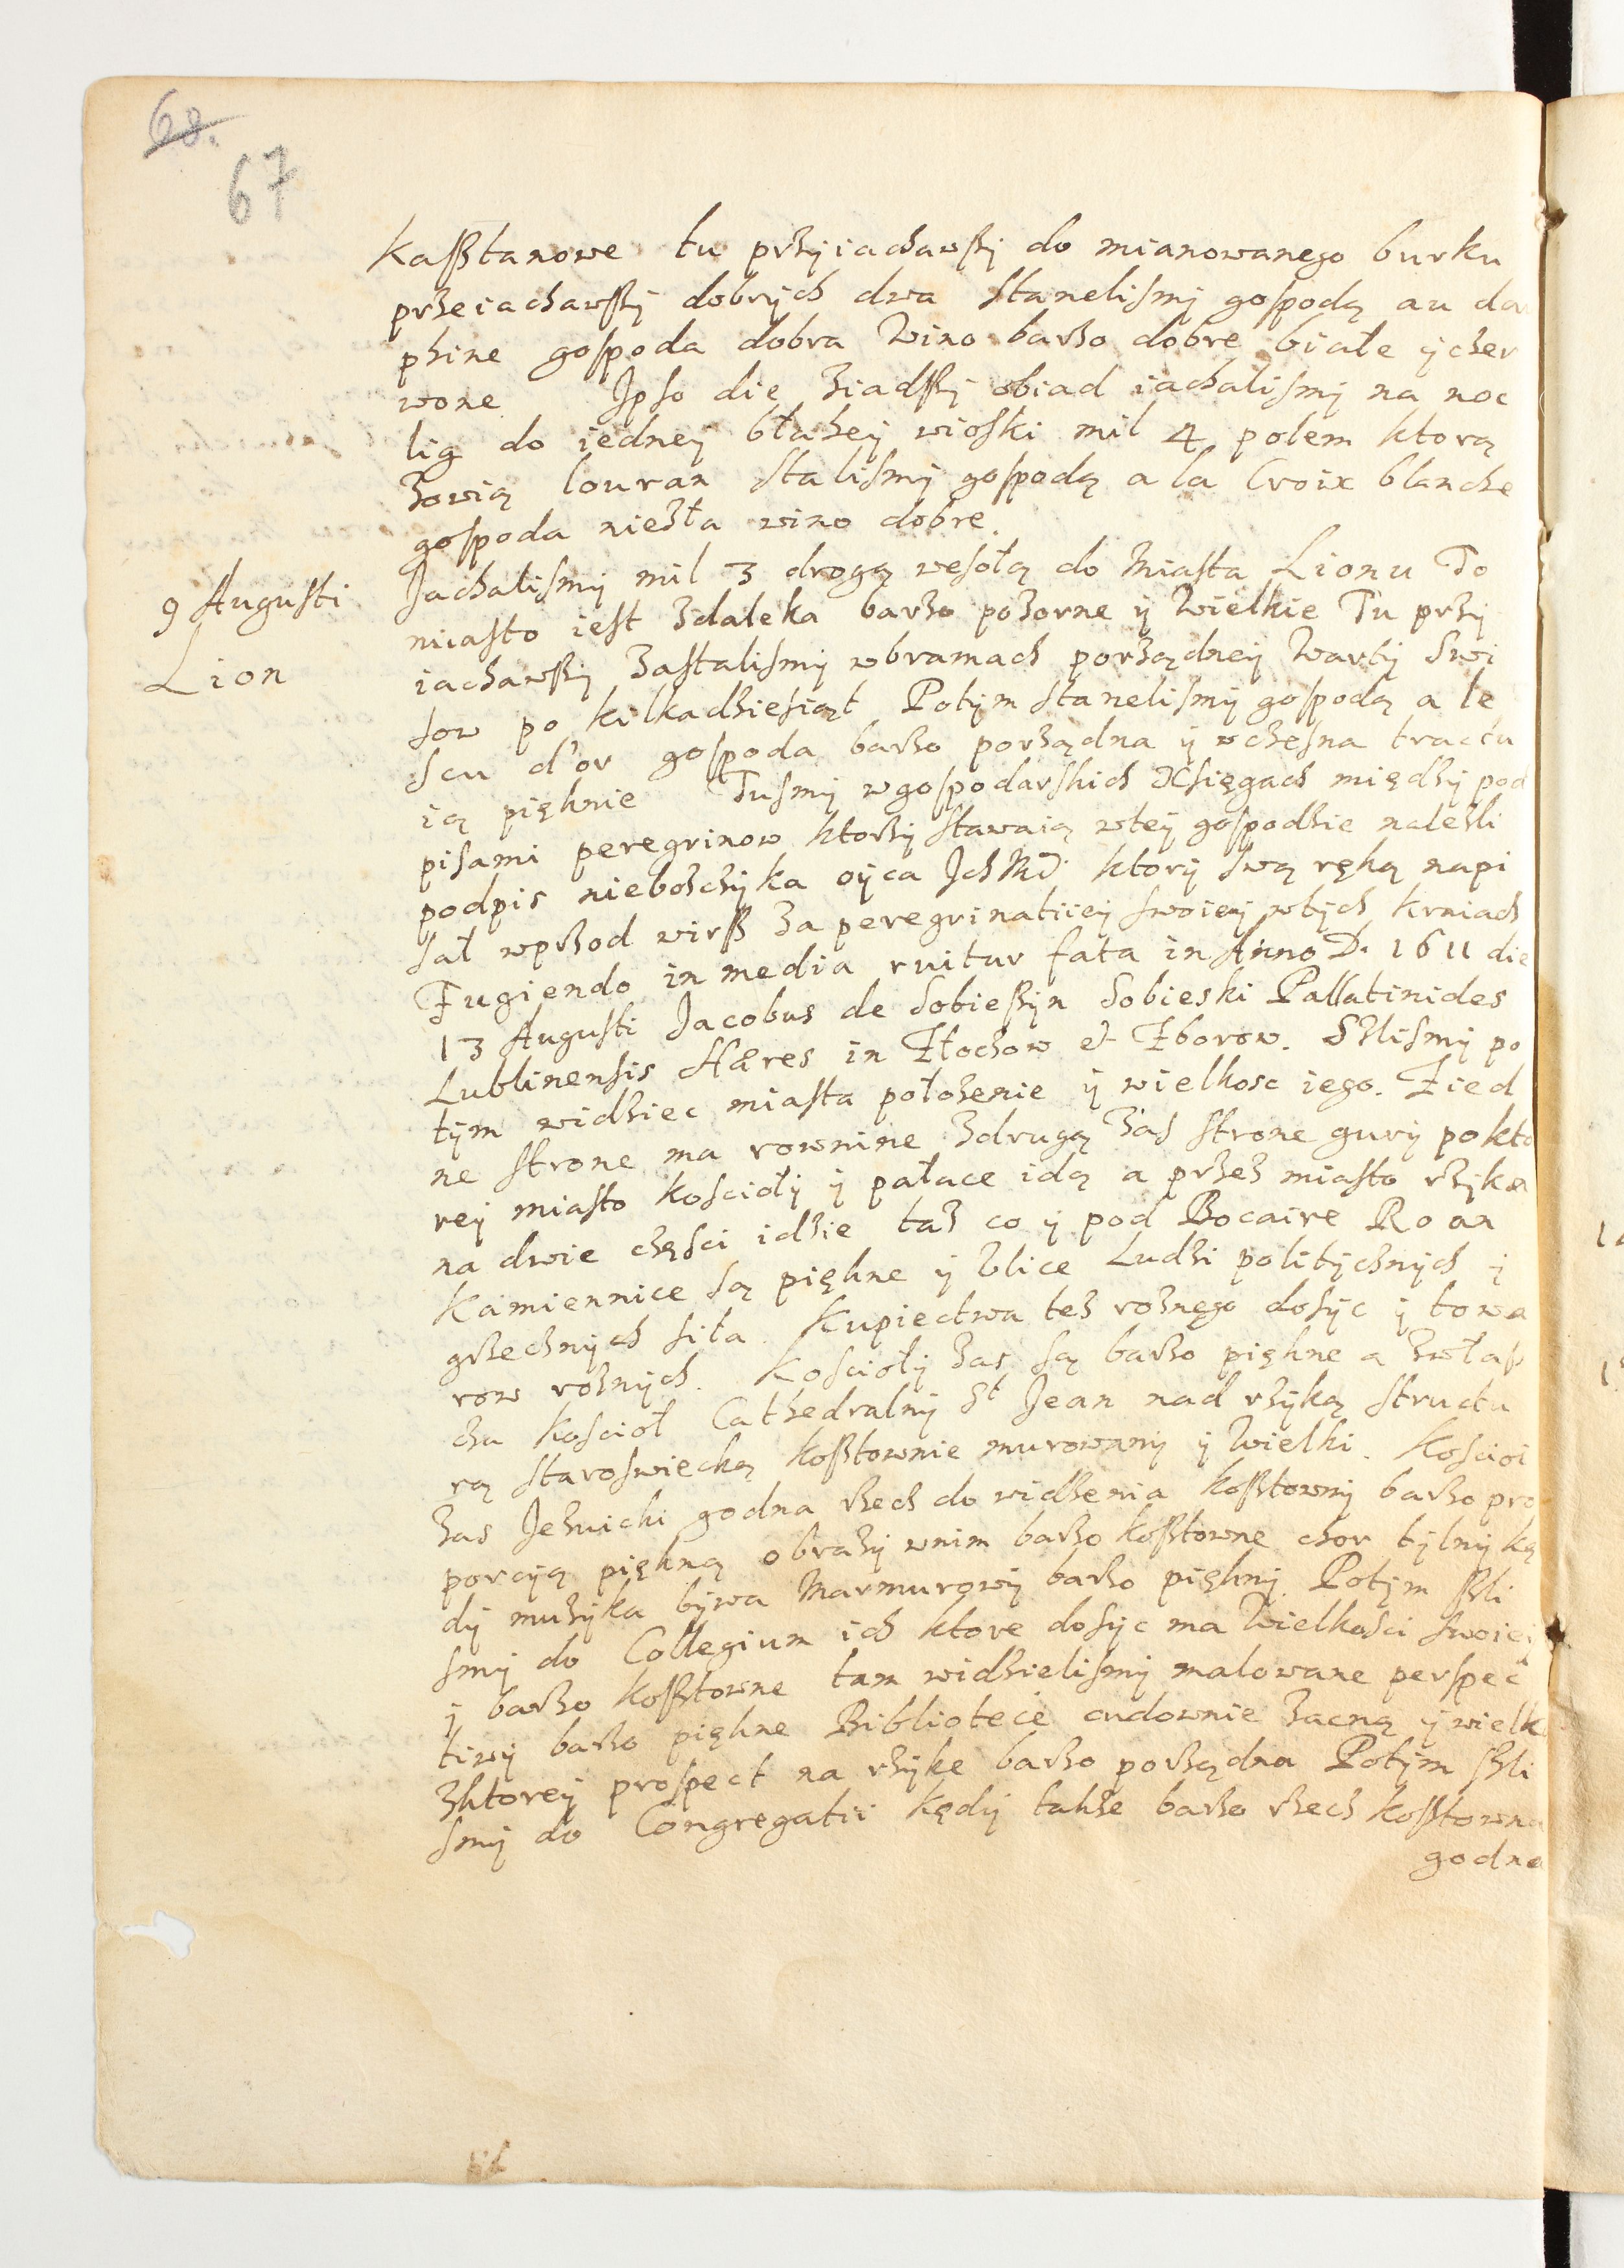 68.
67
Kaſsztanowe tu przyiachawszy do mianowanego burku
przeiachawszy dobrych dwa stanelismy gospodą au dau
phine gospoda dobra Wino barzo dobre białe y czer
wone Ipso die ziadszy obiad iachalismy na noc
lig do iedney błazey wioski mil 4 polem ktorą
zowią Couran stalismy gospodą a la Croix blanche
gospoda niezła wino dobre.
9 Augusti
Lion
Jachalismy mil 3 drogą wesołą do Miasta Lionu To
miasto iest zdaleka barzo pozorne y Wielkie Tu przy
iachawszy zastalismy wbramach porządney Warty Swi
sow po kilkadziesiąt Potym stanelismy gospodą a le
scu d'or gospoda barzo porządna y wczesna tractu
ią pięknie Tusmy wgospodarskich Xsięgach między pod
pisami peregrinow ktorzy stawaią wtey gospodzie nalezli
podpis nieboszczyka oyca Ich Mći ktory swą ręką napi
sał wprzod wirsz za peregrinatiiey swoiey wtych kraiach
Fugiendo in media ruitur fata in Anno D. 1611 die
13 Augusti Jacobus de Sobieszyn Sobieski Pallatinides
Lublinensis Hæres in Złoczow et Zborow. Szlismy po
tym widziec miasta położenie y wielkosc iego. Zied
ne strone ma rownine zdrugą zas strone gury po kto
rey miasto koscioły y pałace idą a przez miasto rzyka
na dwie częsci idzie taz co y pod Bocaire Roan
Kamiennice są piękne y Ulice Ludzi politycznych y
grzecznych siła. Kupiectwa tez roznego dosyc y towa
row roznych. Koscioły zas są barzo piękne a zwłasz
cza kosciol Cathedralny St Jean nad rzyką structu
rą staroswiecką kosztownie murowany y Wielki. Koscioł
zas Jezuicki godna rzecz do widzenia kosztowny barzo pro
porcyą piękną obrazy wnim barzo kosztowne chor tylny kę
dy muzyka bywa Marmurowy barzo piękny. Potym szli
smy do Collegium ich ktore dosyc ma Wielkosci swoiey
y barzo kosztowne tam widzielismy malowane perspec
tiwy barzo piękne Bibliotece cudownie zacną y wielk
zktorey prospect na rzyke barzo porządna Potym szli
smy do Congregatii kędy takze barzo rzecz kosztowna
godna